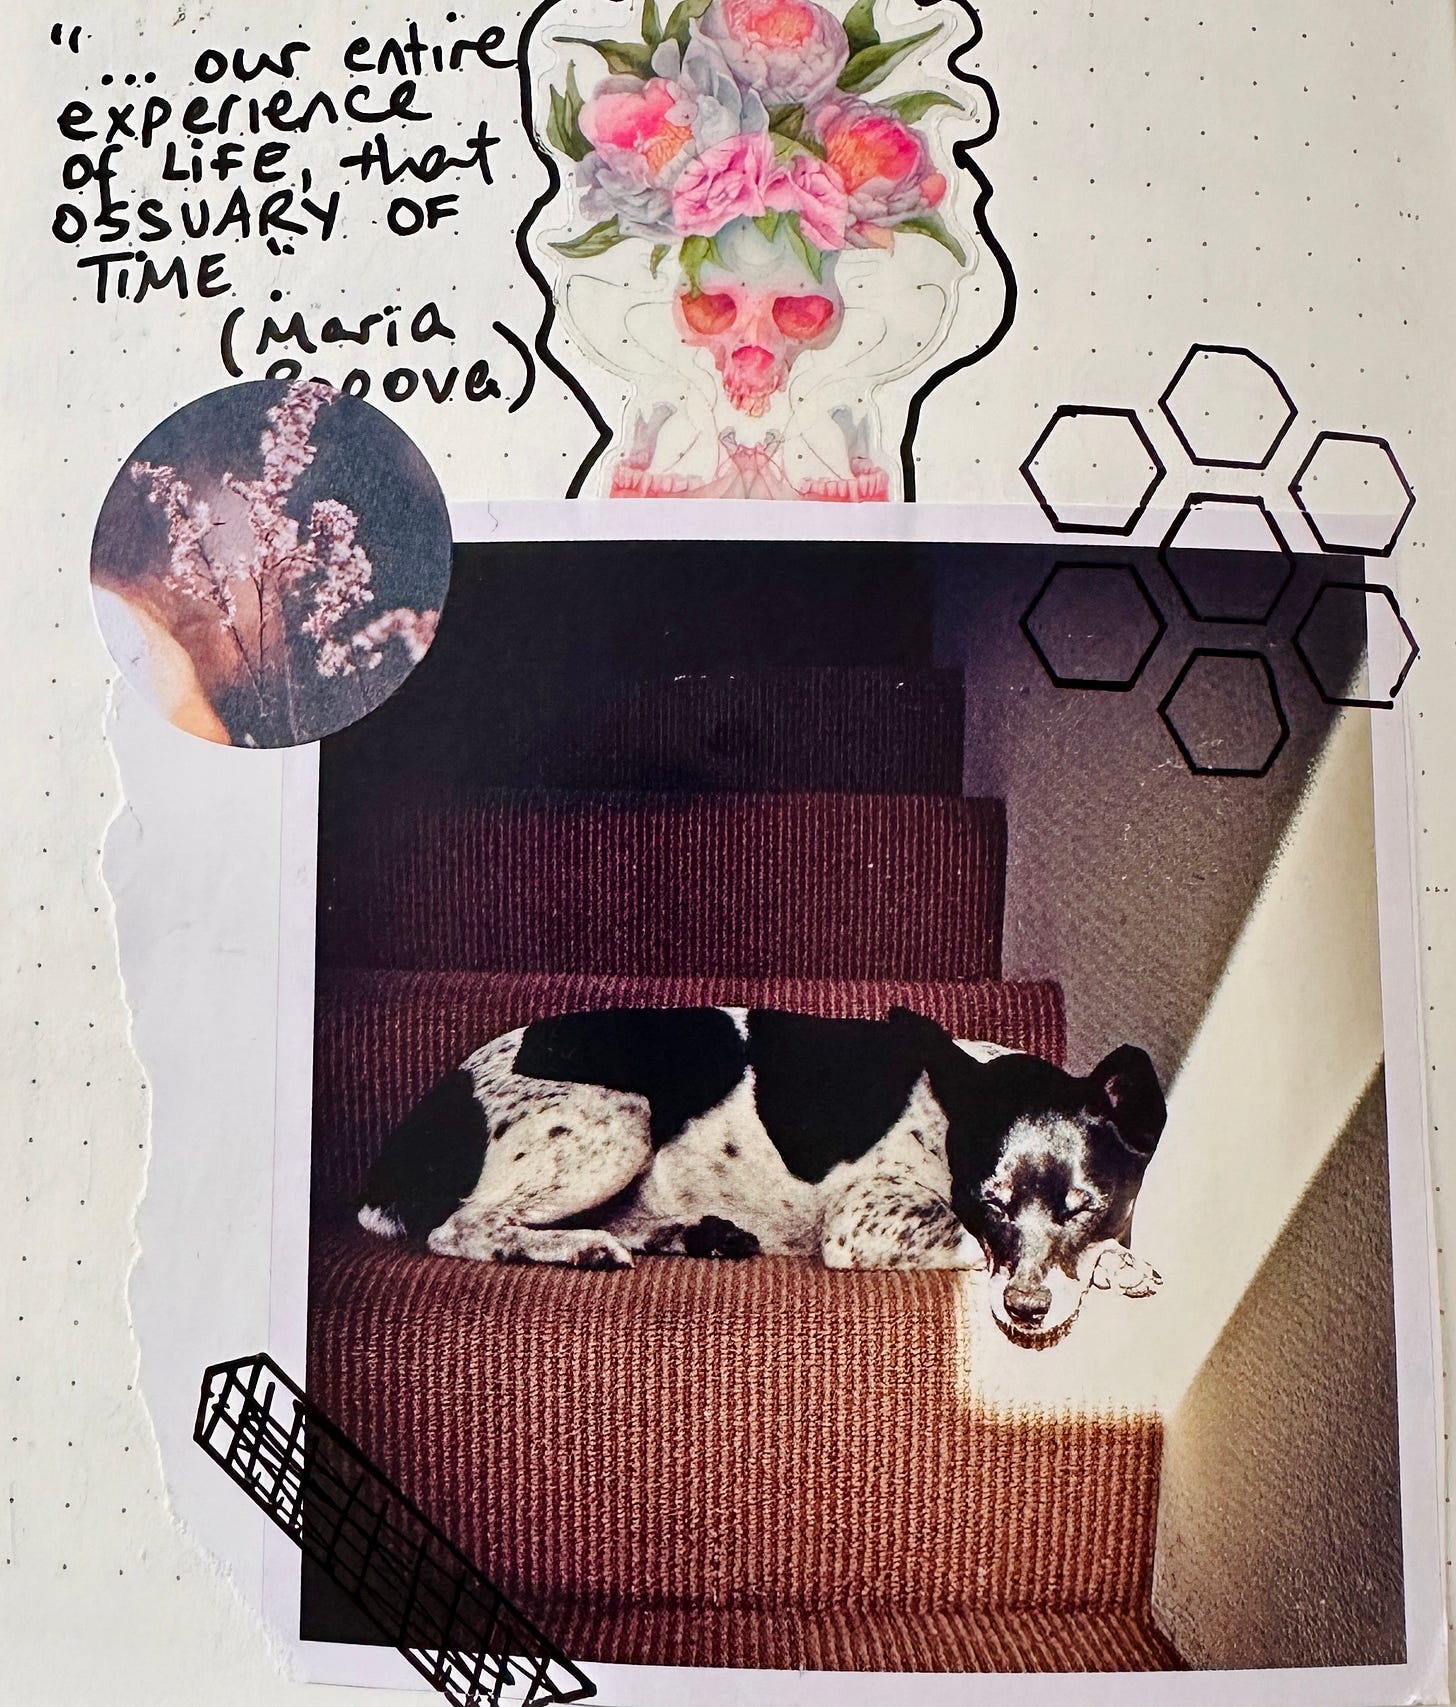 "... our entire
experience
of LiFE, that
OSSUARY OF
TiME"
(Maria
Popova)